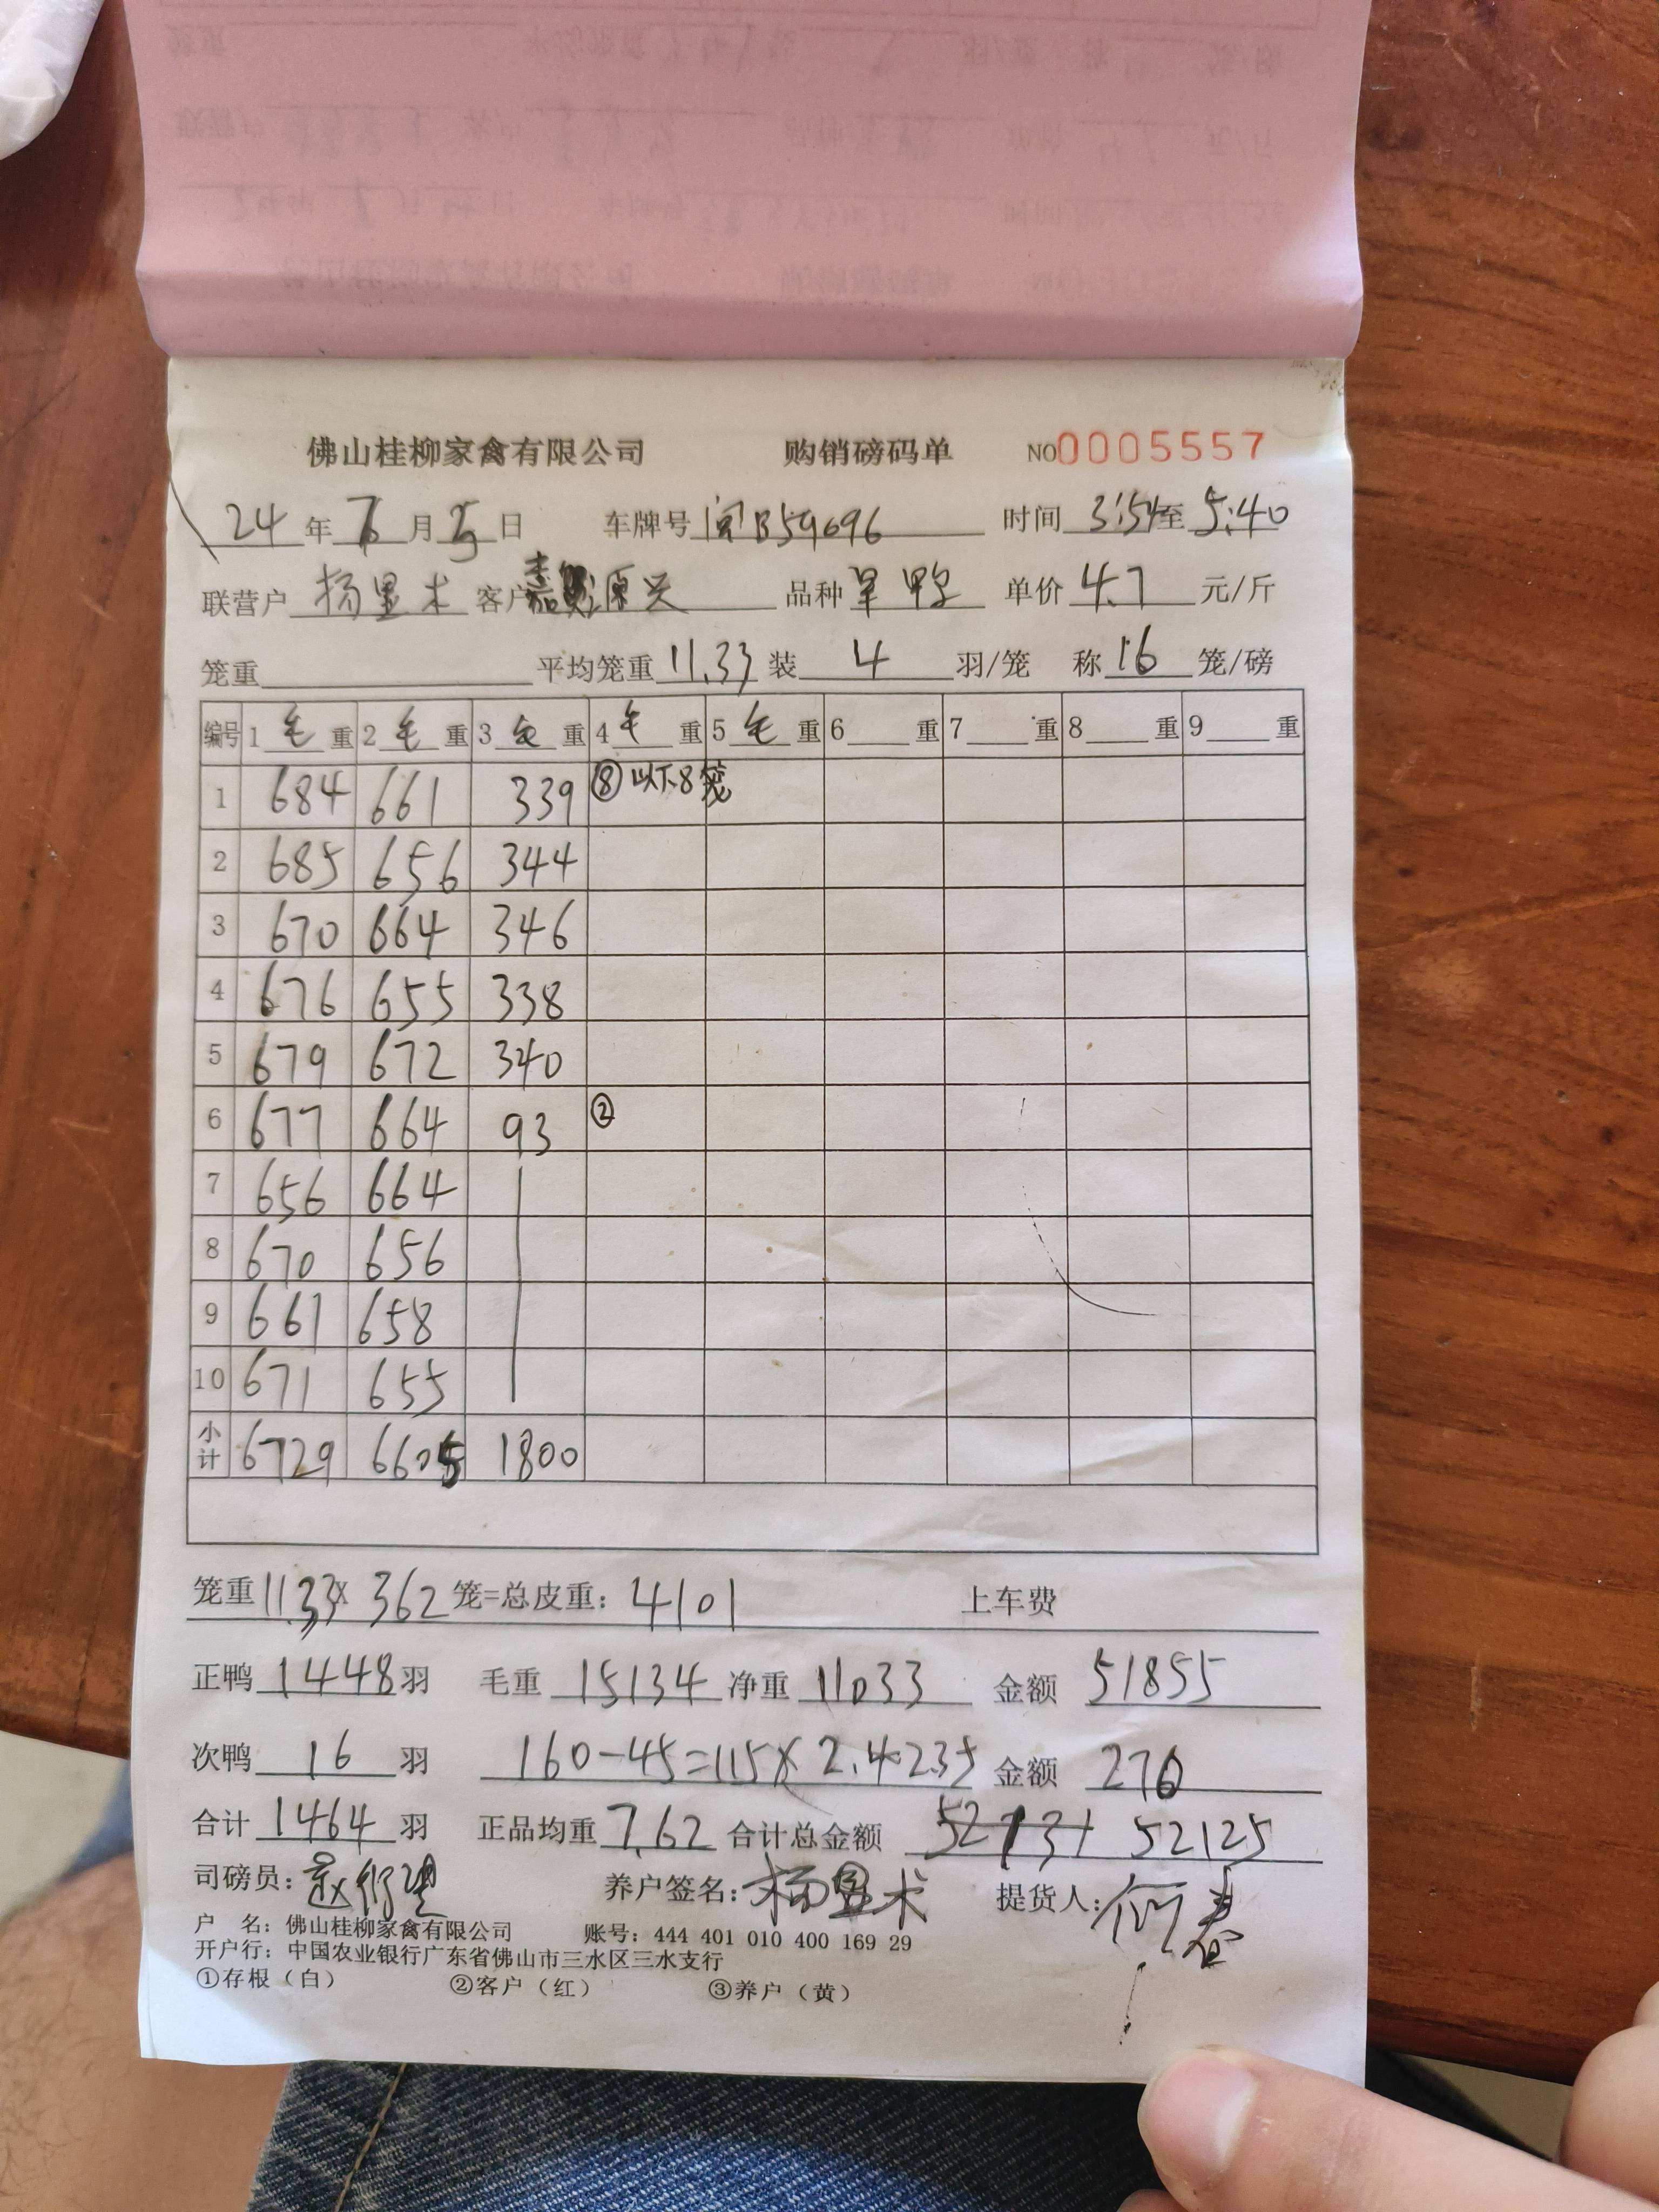 佛山桂柳家禽有限公司 购销磅码单 NO0005557
24年7月5日 车牌号 闽B59696 时间 3:54至5:40
联营户 杨显术 客户 嘉原兴 品种 旱鸭 单价 4.7 元/斤
笼重 平均笼重 11.33 装 4 羽/笼 称 16 笼/磅
编号 1毛重 2毛重 3毛重 4毛重 5毛重 6重 7重 8重 9重
1 684 661 339 ⑧以下8笼
2 685 656 344
3 670 664 346
4 676 655 338
5 679 672 340
6 677 664 93 ②
7 656 664
8 670 656
9 661 658
10 671 655
小计 6729 6605 1800
笼重11.33X 362 笼=总皮重: 4101 上车费
正鸭 1448 羽 毛重 15134 净重 11033 金额 51855
次鸭 16 羽 160-45=115X2.4 金额 270
合计 1464 羽 正品均重 7.62 合计总金额 52125
司磅员: 养户签名: 杨显术 提货人:
户 名: 佛山桂柳家禽有限公司 账号: 444 401 010 400 169 29
开户行: 中国农业银行广东省佛山市三水区三水支行
①存根（白） ②客户（红） ③养户（黄）